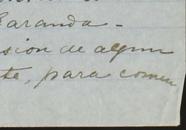 Garanda -
sion de algun
te, para comu